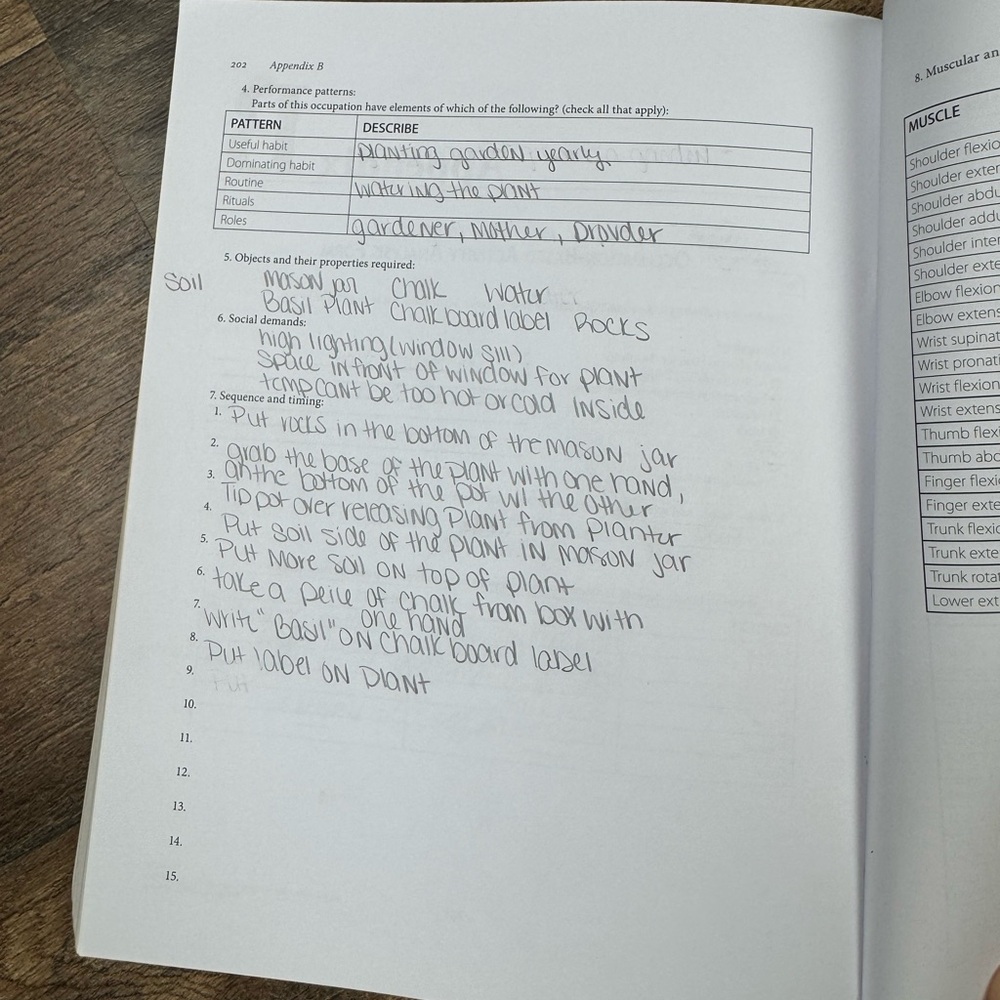 202 Appendix B
4. Performance patterns:
Parts of this occupation have elements of which of the following? (check all that apply):
PATTERN DESCRIBE
Useful habit planting garden yearly
Dominating habit
Routine watering the plant
Rituals
Roles gardener, mother, provder
5. Objects and their properties required:
Soil Mason jar Chalk Water
Basil Plant Chalkboard label Rocks
6. Social demands:
high lighting (window sill)
space infront of window for plant
temp cant be too hot or cold inside
7. Sequence and timing:
1. Put rocks in the bottom of the mason jar
2. grab the base of the plant with one hand,
3. an the bottom of the pot w/ the other
4. Tip pot over releasing plant from planter
5. Put soil side of the plant in mason jar
6. Put more soil on top of plant
7. take a peice of chalk from box with
one hand
8. Write "Basil" on chalkboard label
9. Put label on plant
Put
10.
11.
12.
13.
14.
15.
8. Muscular an
MUSCLE
Shoulder flexio
Shoulder exter
Shoulder abdu
Shoulder addu
Shoulder inter
Shoulder exte
Elbow flexion
Elbow extens
Wrist supinat
Wrist pronati
Wrist flexion
Wrist extens
Thumb flexi
Thumb abd
Finger flexi
Finger exte
Trunk flexic
Trunk exte
Trunk rotat
Lower ext